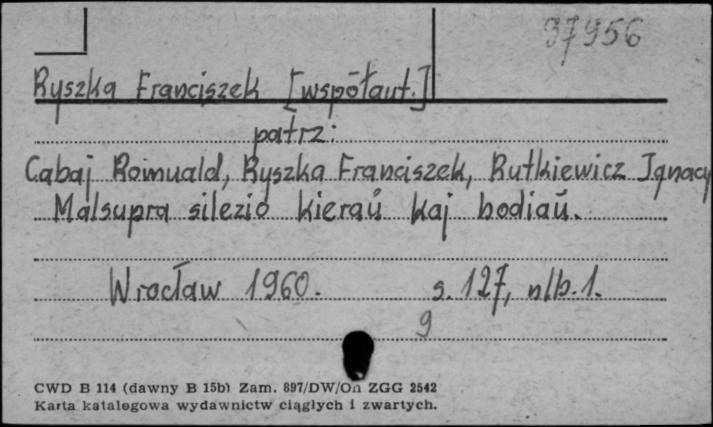 37956
Ryszka Franciszek [współaut.]
patrz:
Cabaj Romuald, Ryszka Franciszek, Rutkiewicz Ignacy
Malsupra silezio kieraŭ kaj hodiaŭ.
Wrocław 1960. s. 127, nlb. 1.
9
CWD B 114 (dawny B 15b) Zam. 897/DW/On ZGG 2542
Karta katalogowa wydawnictw ciągłych i zwartych.